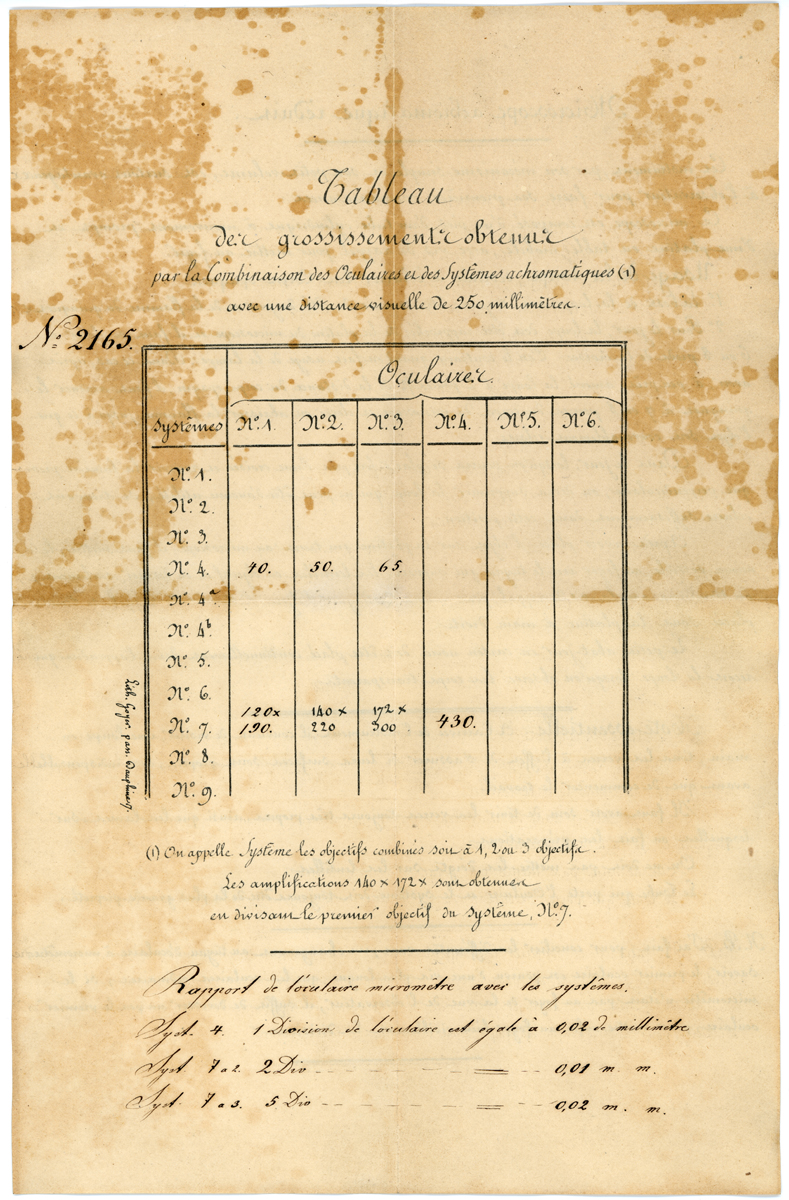 Tableau
des grossissements obtenus
par la Combinaison des Oculaires et des Systêmes achromatiques (1)
avec une distance visuelle de 250 millimètres.
No. 2165.
Oculaires.
Systêmes No. 1. No. 2. No. 3. No. 4. No. 5. No. 6.
No. 1.
No. 2.
No. 3.
No. 4. 40. 50. 65.
No. 4a.
No. 4b.
No. 5.
No. 6.
120x 140 x 172 x
No. 7. 190. 220 300 430.
No. 8.
No. 9.
Lith. pas. Dauphine
(1) On appelle Système les objectifs combinés soit à 1, 2 ou 3 objectifs.
Les amplifications 140 x 172 x sont obtenues
en divisant le premier objectif du système, No. 7.
Rapport de l'oculaire micromètre avec les systêmes.
Syst. 4. 1 Division de l'oculaire est égale à 0,02 de millimètre
Syst 7 a 2. 2 Div - - - = - - 0,01 m. m.
Syst. 7 a 3. 5 Div - - - = - - 0,02 m. m.